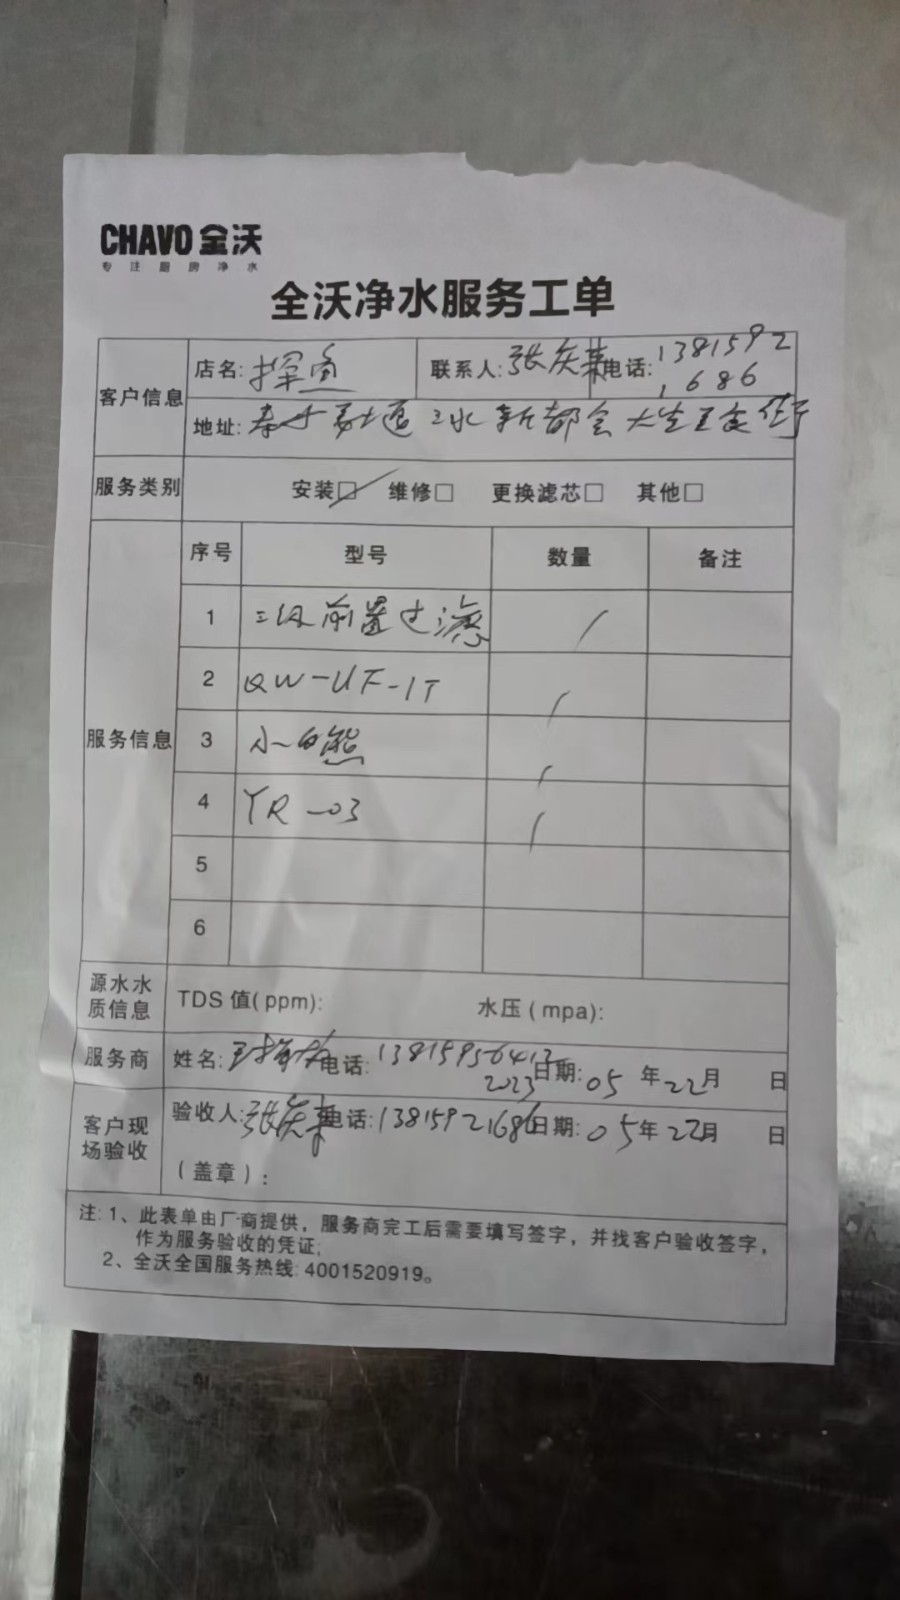 CHAVO 全沃
专注厨房净水
全沃净水服务工单
客户信息 店名: 探鱼 联系人: 张庆 电话: 1381592
1686
地址: 大道 新都会 美食街
服务类别 安装☑ 维修□ 更换滤芯□ 其他□
服务信息 序号 型号 数量 备注
1 三级前置过滤 1
2 QW-UF-1T 1
3 小白熊 1
4 YR-03 1
5
6
源水水质信息 TDS 值(ppm): 水压(mpa):
服务商 姓名: 电话: 13815956413 日期: 2023 05 年 22 月 日
客户现场验收 验收人: 张庆 电话: 13815921686 日期: 05 年 22 月 日
(盖章):
注: 1、此表单由厂商提供，服务商完工后需要填写签字，并找客户验收签字，
作为服务验收的凭证;
2、全沃全国服务热线: 4001520919。